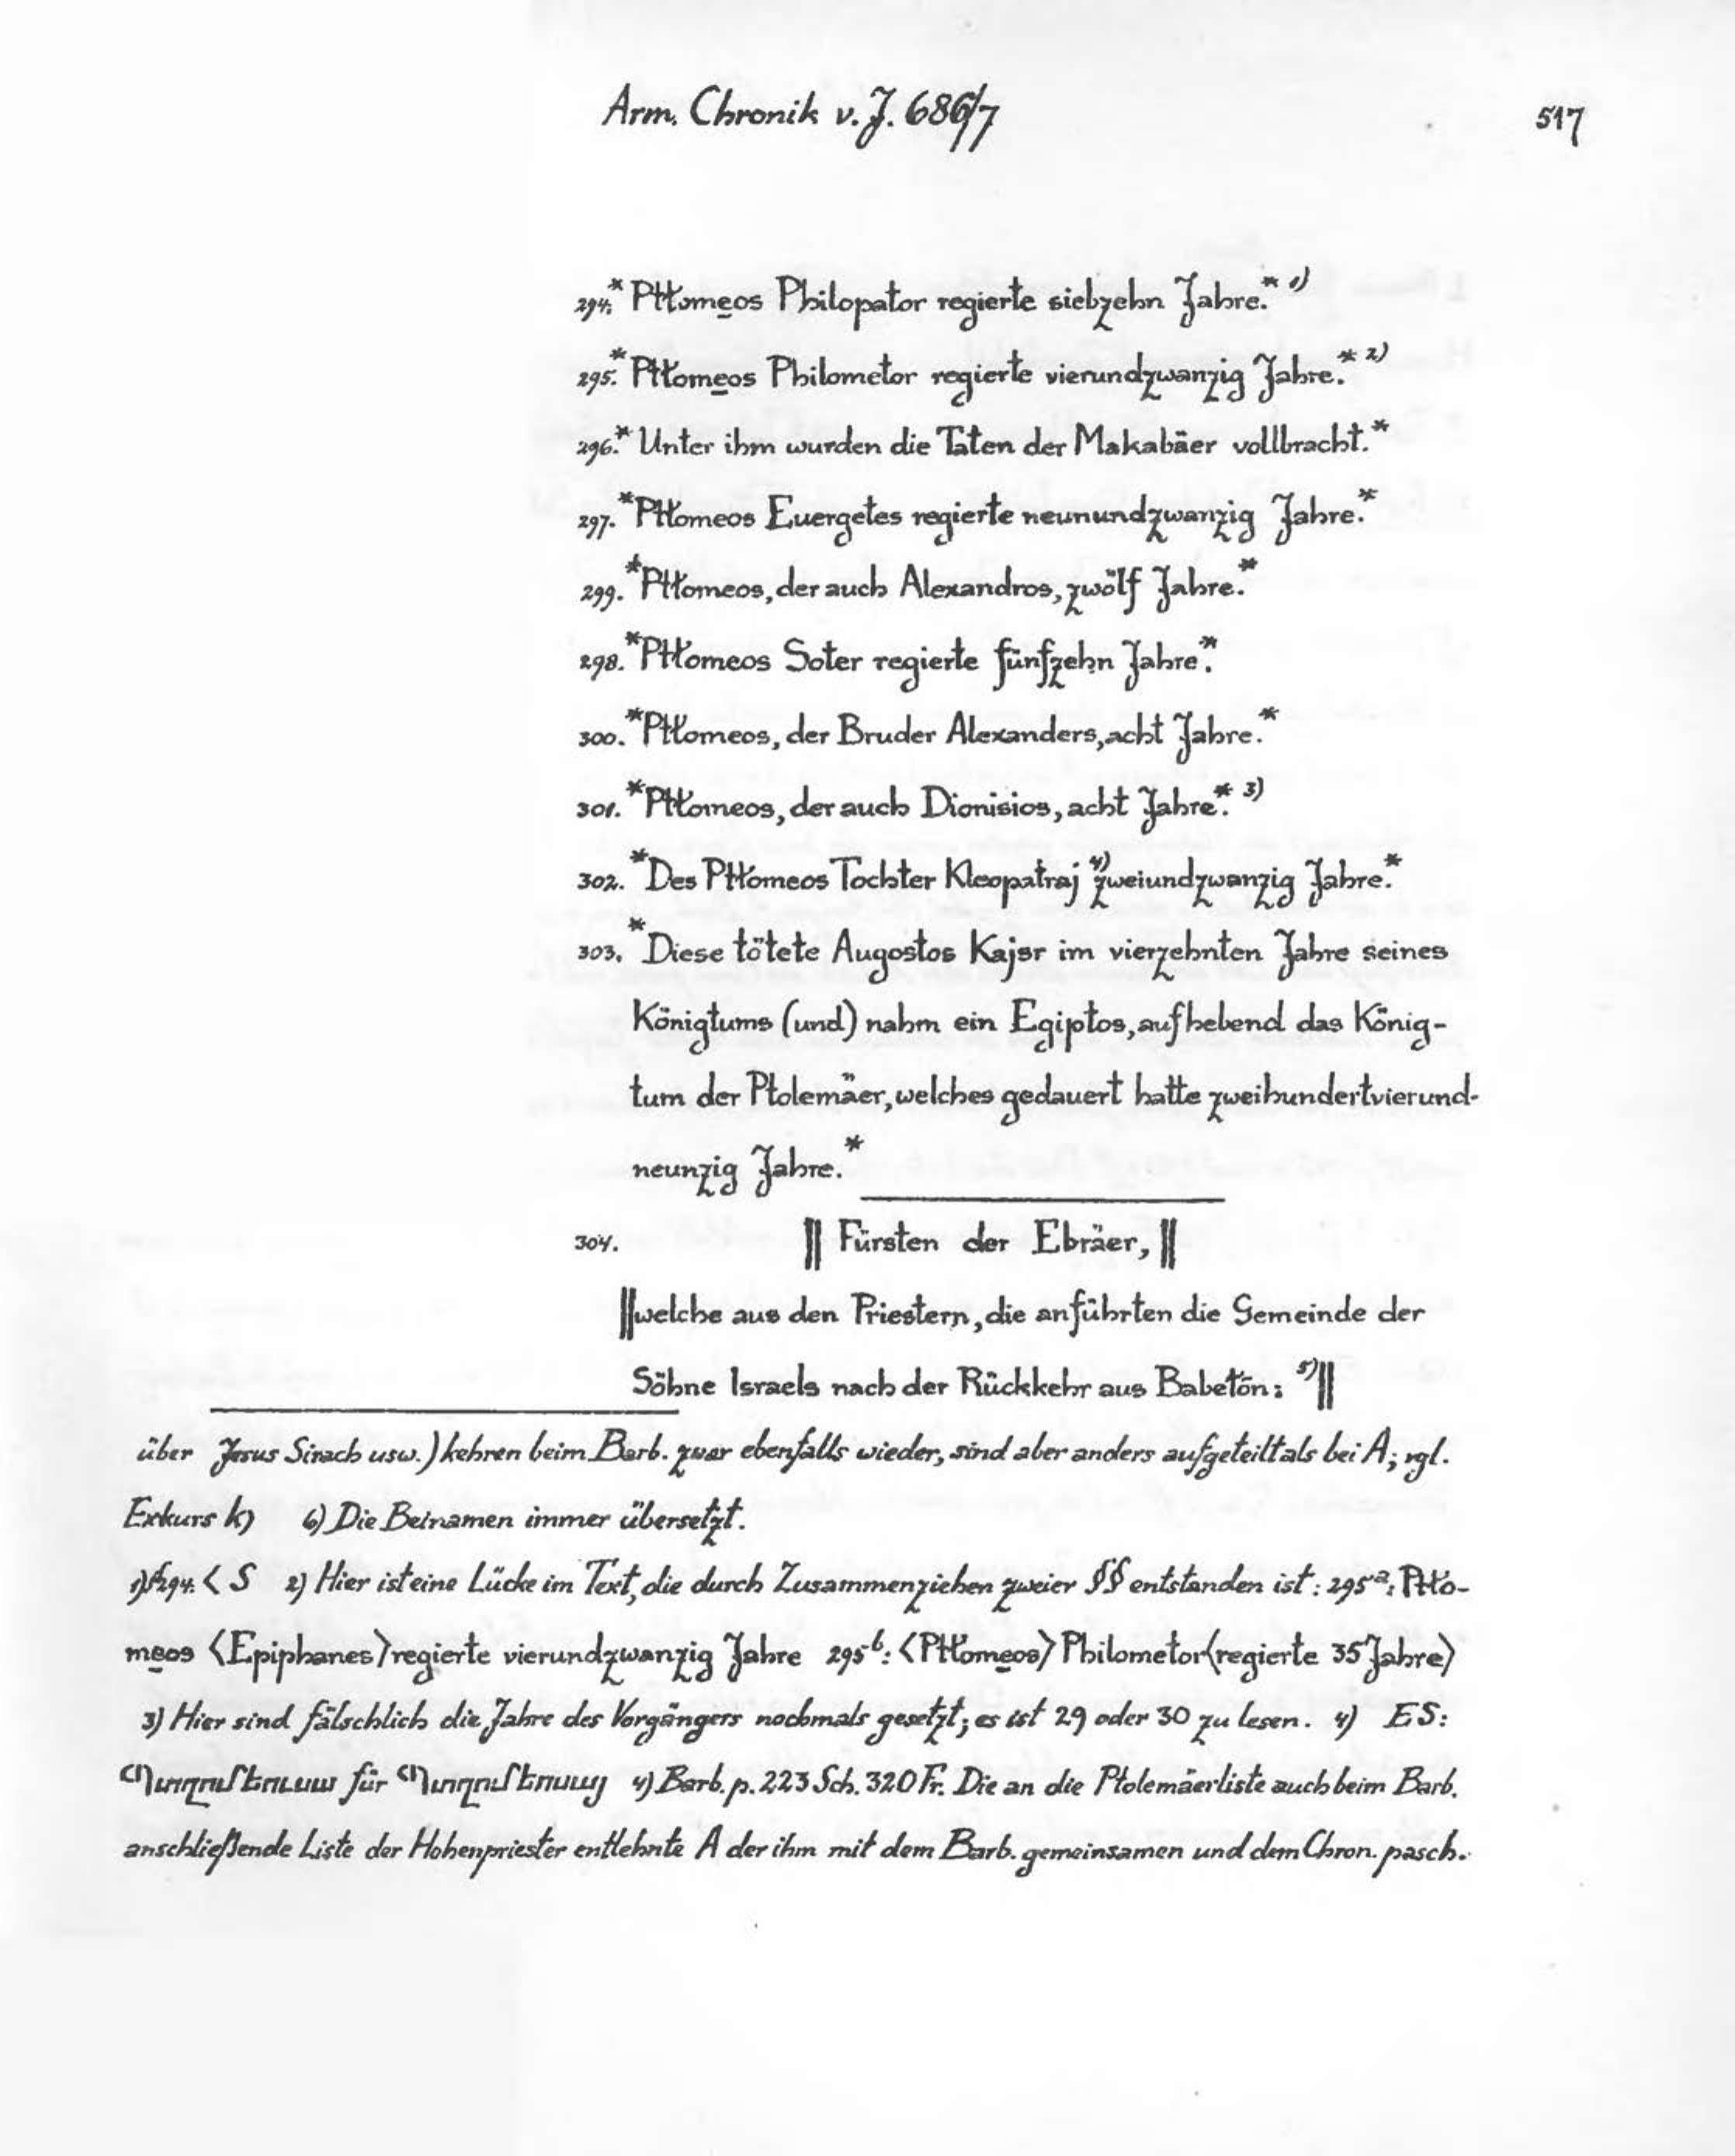 Arm. Chronik v. J. 686/7
517
294.* Ptłomeos Philopator regierte siebzehn Jahre.* 1)
295.* Ptłomeos Philometor regierte vierundzwanzig Jahre.* 2)
296.* Unter ihm wurden die Taten der Makabäer vollbracht.*
297. *Ptłomeos Euergetes regierte neunundzwanzig Jahre.*
299. *Ptłomeos, der auch Alexandros, zwölf Jahre.*
298. *Ptłomeos Soter regierte fünfzehn Jahre.*
300. *Ptłomeos, der Bruder Alexanders, acht Jahre.*
301. *Ptłomeos, der auch Dionisios, acht Jahre.* 3)
302. *Des Ptłomeos Tochter Kleopatraj 4) zweiundzwanzig Jahre.*
303. *Diese tötete Augostos Kajsr im vierzehnten Jahre seines
Königtums (und) nahm ein Egiptos, aufhebend das König-
tum der Ptolemäer, welches gedauert hatte zweihundertvierund-
neunzig Jahre.*
304. || Fürsten der Ebräer, ||
||welche aus den Priestern, die anführten die Gemeinde der
Söhne Israels nach der Rückkehr aus Babełōn: 5)||
über Jesus Sirach usw.) kehren beim Barb. zwar ebenfalls wieder, sind aber anders aufgeteilt als bei A; vgl.
Exkurs k) 6) Die Beinamen immer übersetzt.
1) § 294: < S 2) Hier ist eine Lücke im Text, die durch Zusammenziehen zweier §§ entstanden ist: 295a: Ptło-
meos ⟨Epiphanes⟩ regierte vierundzwanzig Jahre 295b: ⟨Ptłomeos⟩ Philometor ⟨regierte 35 Jahre⟩
3) Hier sind fälschlich die Jahre des Vorgängers nochmals gesetzt; es ist 29 oder 30 zu lesen. 4) ES:
für 4) Barb. p. 223 Sch. 320 Fr. Die an die Ptolemäerliste auch beim Barb.
anschließende Liste der Hohenpriester entlehnte A der ihm mit dem Barb. gemeinsamen und dem Chron. pasch.